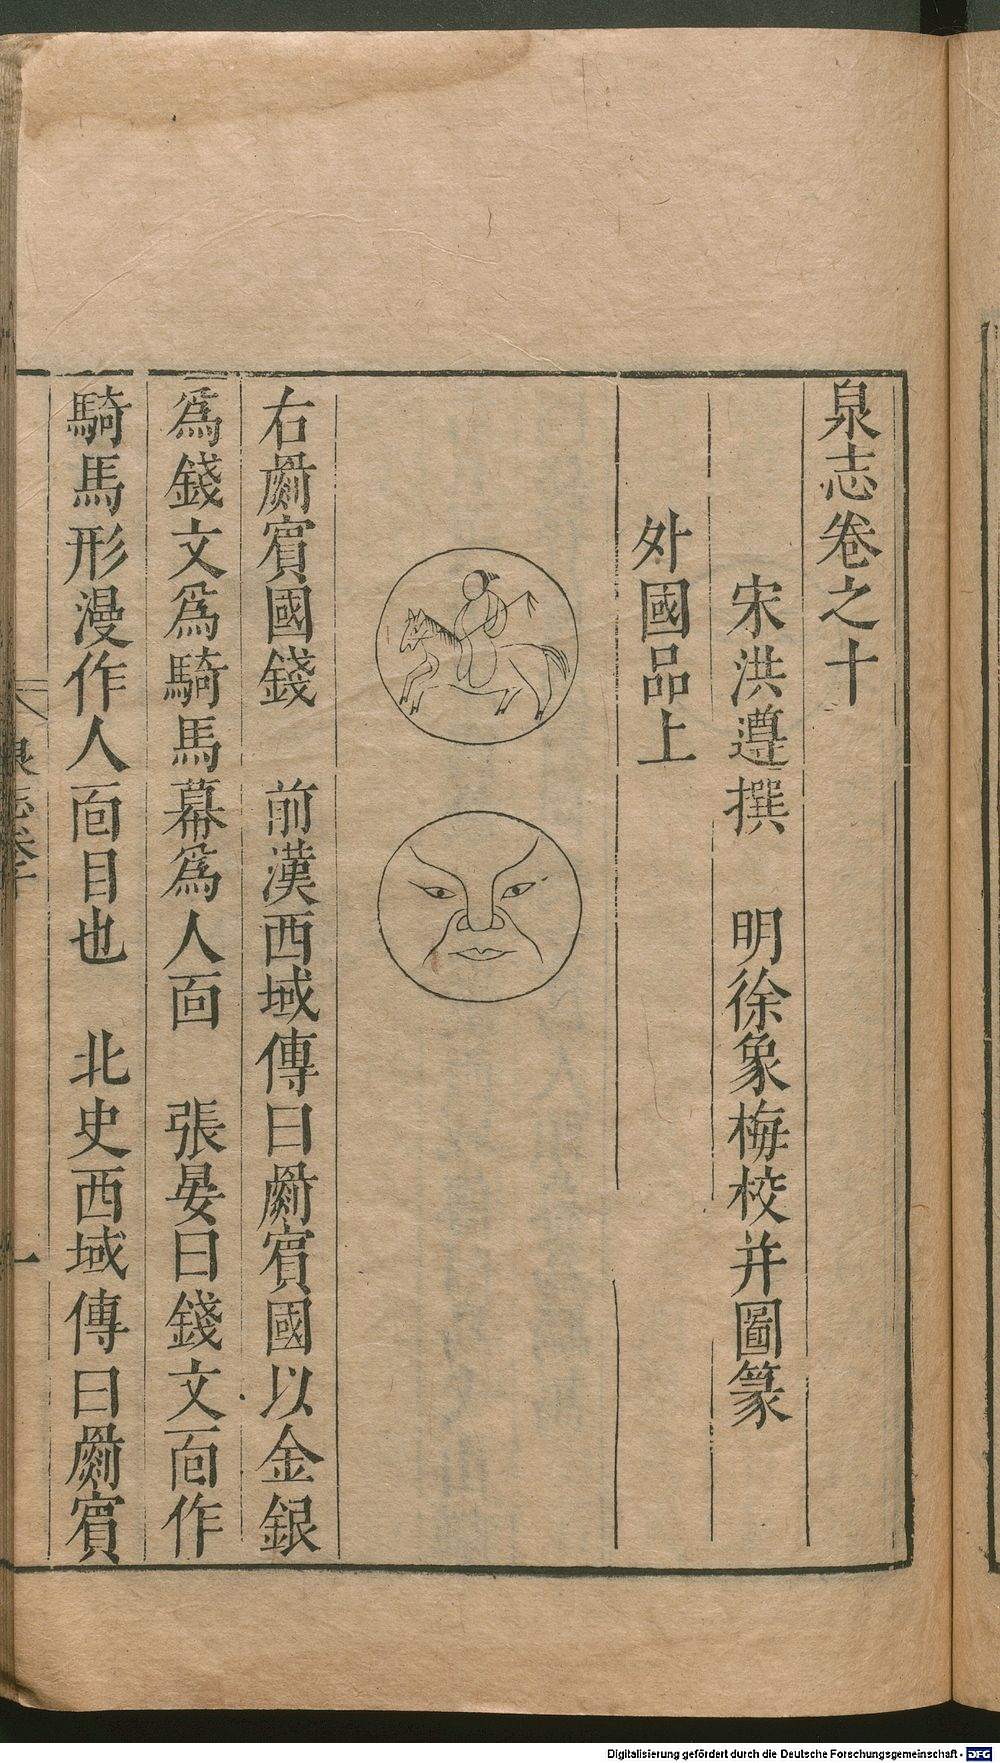 泉志卷之十
宋洪遵撰　明徐象梅校并圖篆
外國品上
右罽賓國錢　前漢西域傳曰罽賓國以金銀
爲錢文爲騎馬幕爲人面　張晏曰錢文面作
騎馬形漫作人面目也　北史西域傳曰罽賓
泉志卷十
一
Digitalisierung gefördert durch die Deutsche Forschungsgemeinschaft - DFG